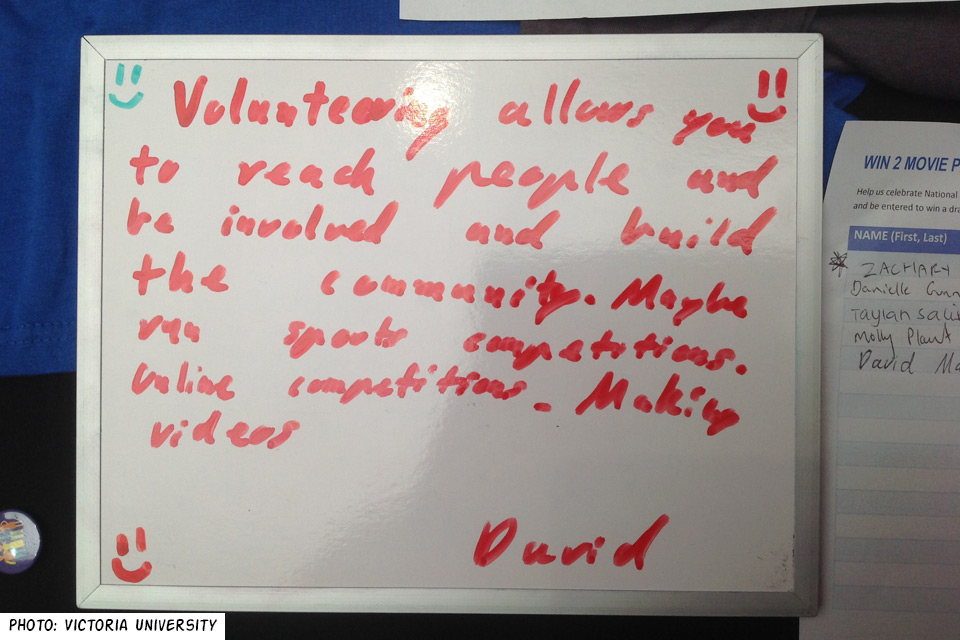 Volunteering allows you
to reach people and
be involved and build
the community. Maybe
run sports competitions.
Online competitions. Making
videos
David
WIN 2 MOVIE P
Help us celebrate National
and be entered to win a dra
NAME (First, Last)
ZACHARY
Danielle
Taylah
Molly Plant
David Ma
PHOTO: VICTORIA UNIVERSITY